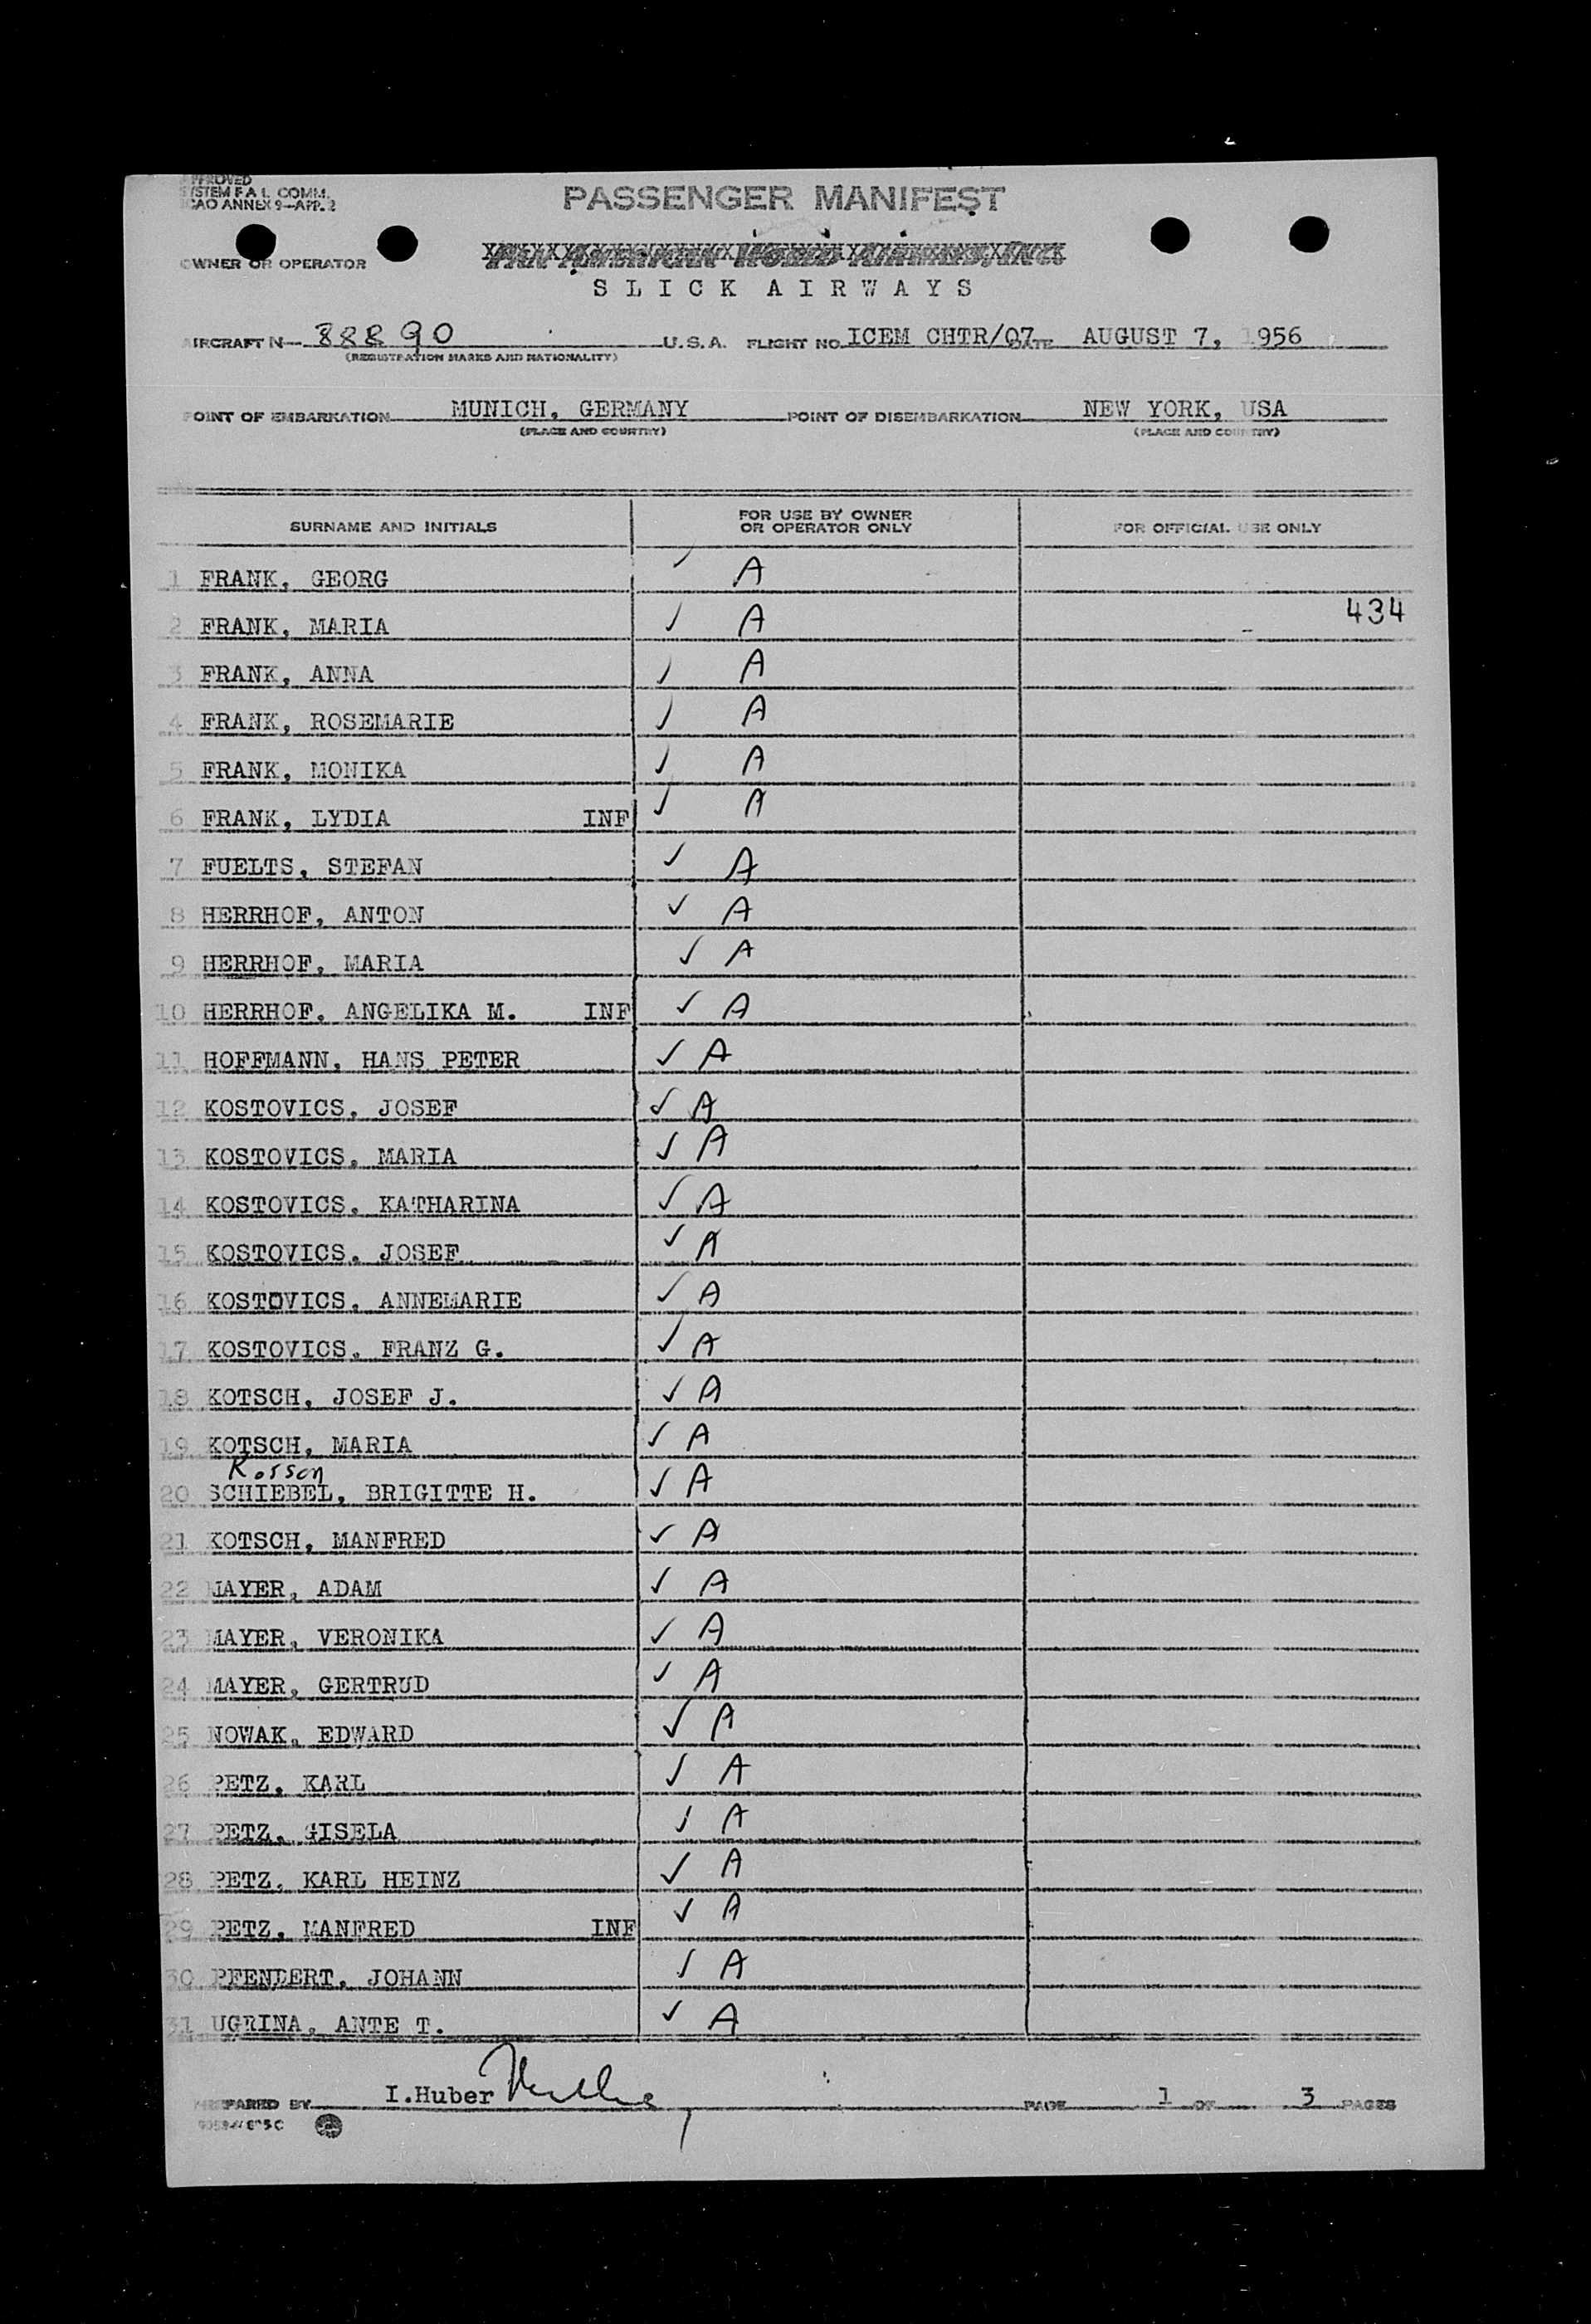 APPROVED
SYSTEM F A L COMM.
ICAO ANNEX 9—APP. 2
PASSENGER MANIFEST
OWNER OR OPERATOR
Pan American World Airways, Inc.
SLICK AIRWAYS
AIRCRAFT N— 88890 U.S.A. FLIGHT NO. ICEM CHTR/Q7 DATE AUGUST 7, 1956
(REGISTRATION MARKS AND NATIONALITY)
POINT OF EMBARKATION MUNICH, GERMANY POINT OF DISEMBARKATION NEW YORK, USA
(PLACE AND COUNTRY) (PLACE AND COUNTRY)
SURNAME AND INITIALS FOR USE BY OWNER OR OPERATOR ONLY FOR OFFICIAL USE ONLY
1 FRANK, GEORG ✓ A
2 FRANK, MARIA ✓ A 434
3 FRANK, ANNA ✓ A
4 FRANK, ROSEMARIE ✓ A
5 FRANK, MONIKA ✓ A
6 FRANK, LYDIA INF ✓ A
7 FUELTS, STEFAN ✓ A
8 HERRHOF, ANTON ✓ A
9 HERRHOF, MARIA ✓ A
10 HERRHOF, ANGELIKA M. INF ✓ A
11 HOFFMANN, HANS PETER ✓ A
12 KOSTOVICS, JOSEF ✓ A
13 KOSTOVICS, MARIA ✓ A
14 KOSTOVICS, KATHARINA ✓ A
15 KOSTOVICS, JOSEF ✓ A
16 KOSTOVICS, ANNEMARIE ✓ A
17 KOSTOVICS, FRANZ G. ✓ A
18 KOTSCH, JOSEF J. ✓ A
19 KOTSCH, MARIA ✓ A
20 SCHIEBEL, BRIGITTE H. ✓ A
21 KOTSCH, MANFRED ✓ A
22 MAYER, ADAM ✓ A
23 MAYER, VERONIKA ✓ A
24 MAYER, GERTRUD ✓ A
25 NOWAK, EDWARD ✓ A
26 PETZ, KARL ✓ A
27 PETZ, GISELA ✓ A
28 PETZ, KARL HEINZ ✓ A
29 PETZ, MANFRED INF ✓ A
30 PFENDERT, JOHANN ✓ A
31 UGRINA, ANTE T. ✓ A
PREPARED BY I.Huber PAGE 1 OF 3 PAGES